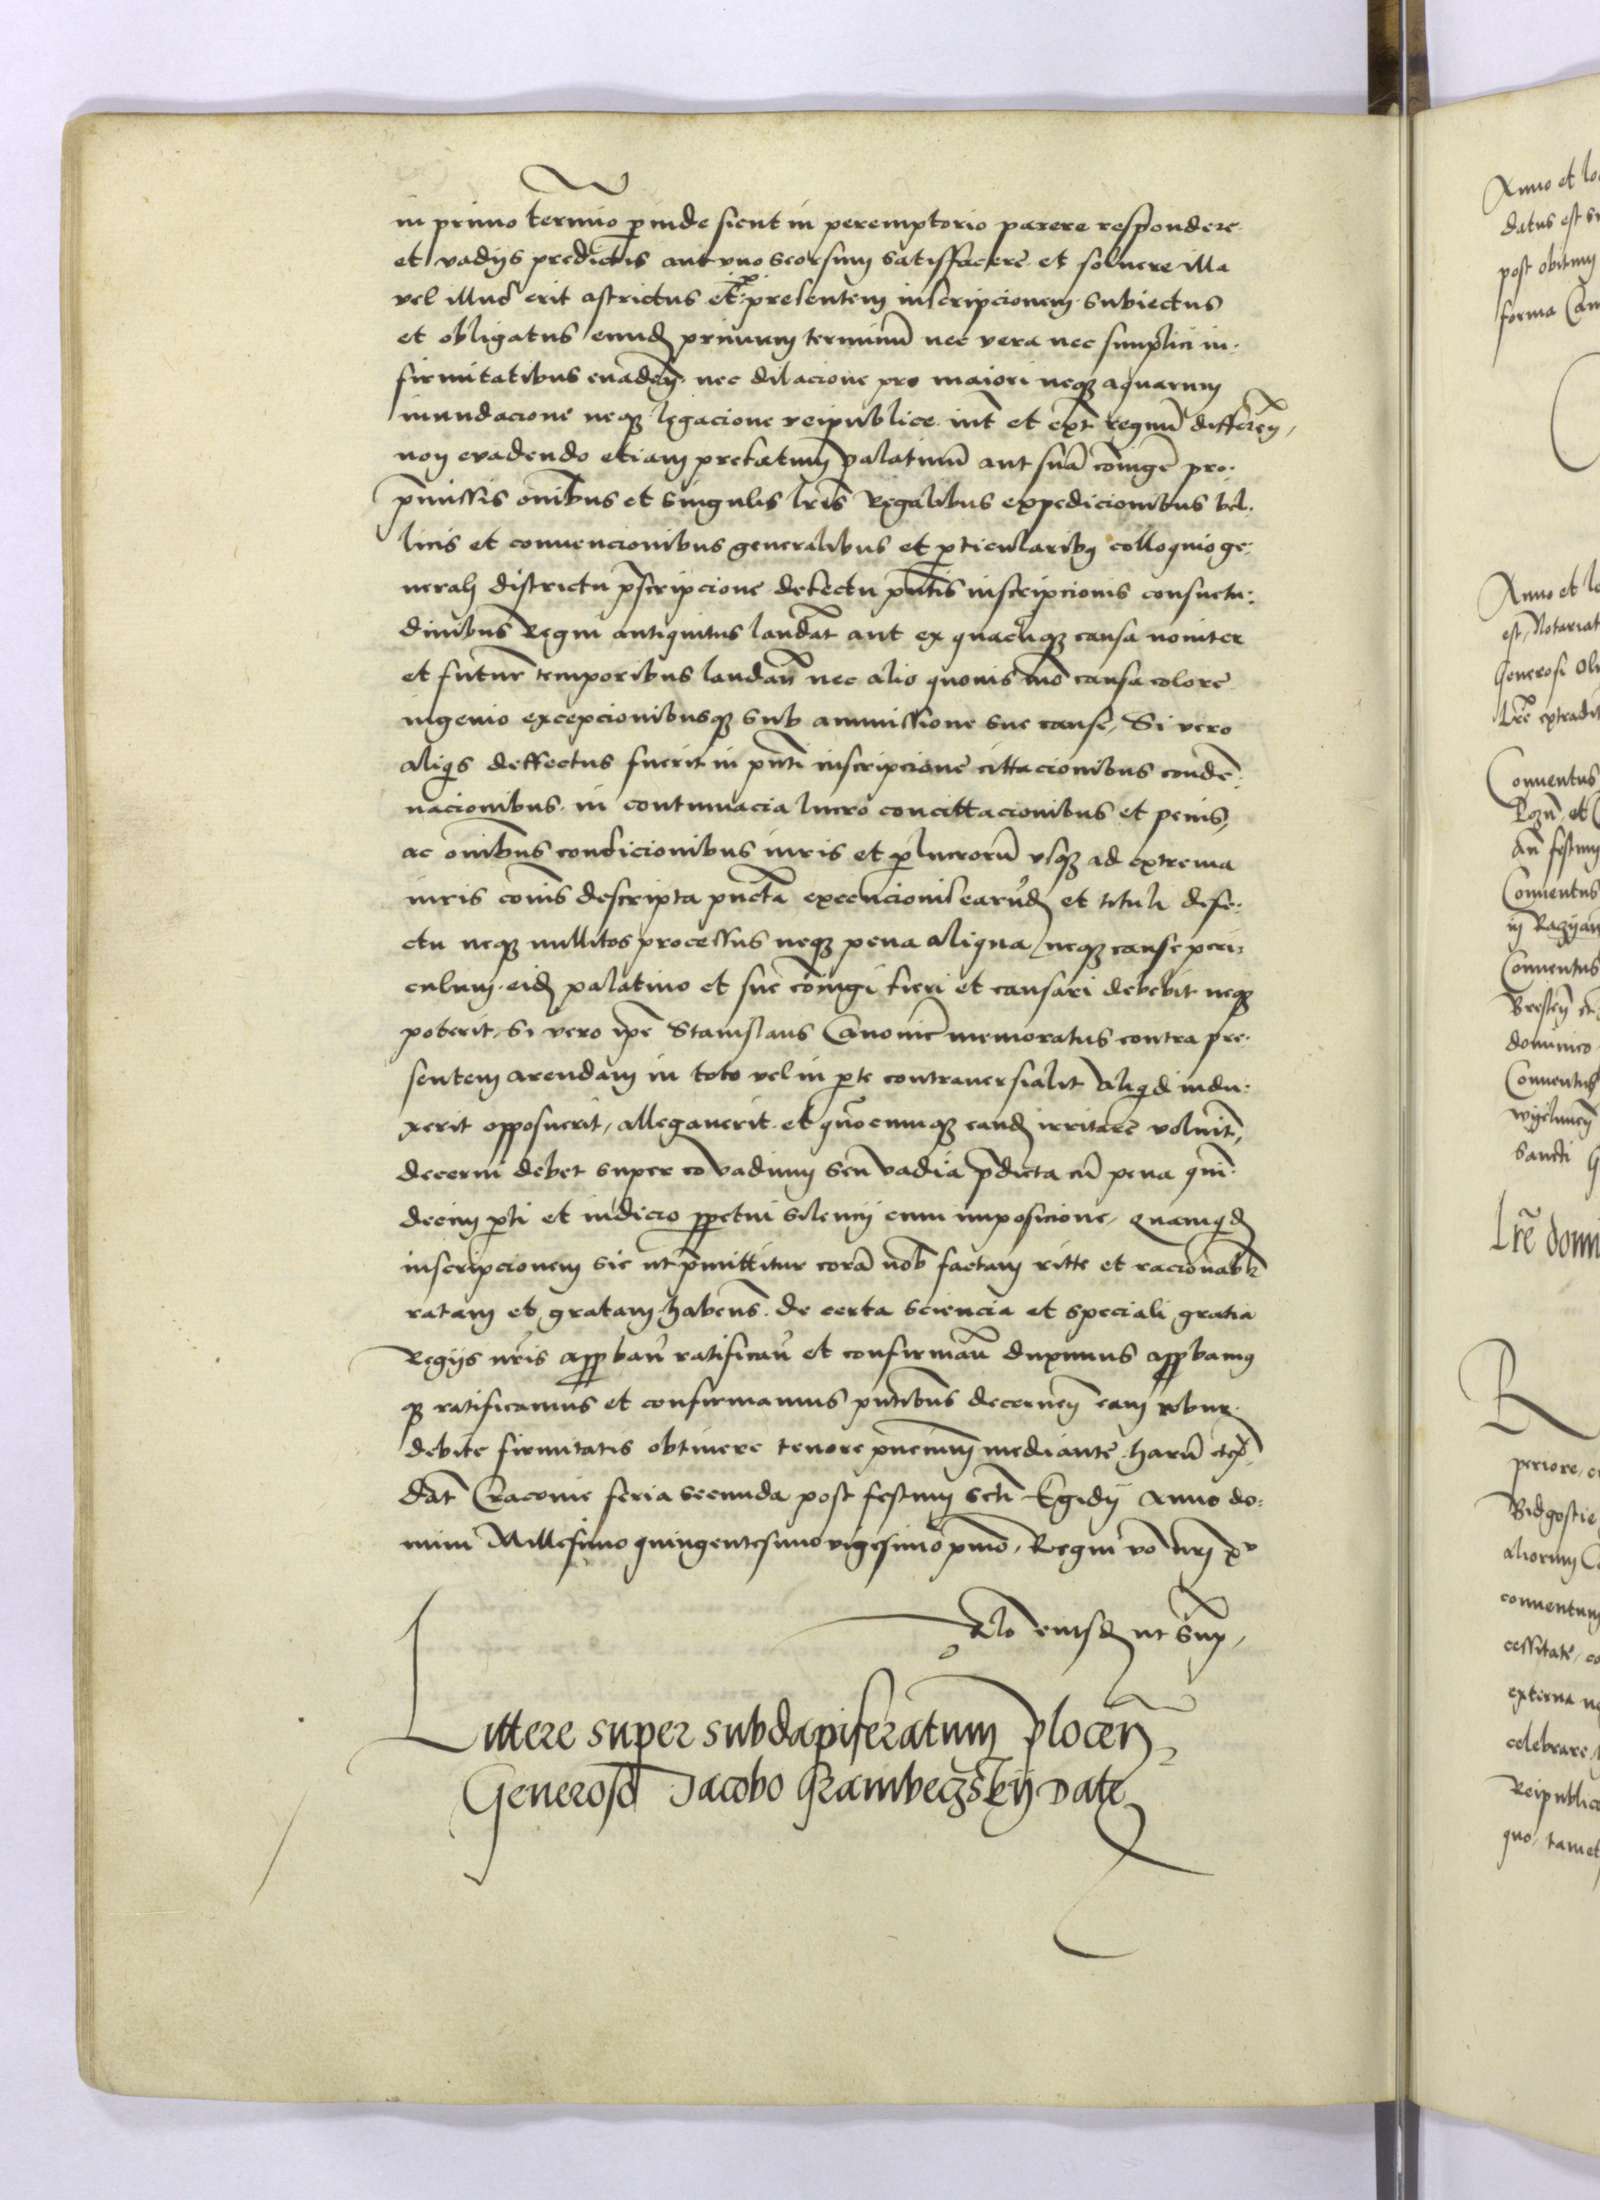 in primo termino perinde sicut in peremptorio parere respondere
et vadijs predictis aut vno seorsum satisffacere et soluere illa
vel illud erit astrictus et presentem inscripcionem subiectus
et obligatus eund primum terminũ nec vera nec simplici in
firmitatibus euadeñ nec dilacione pro maiori neqʒ aquarum
inundacione neqʒ legacione reipublice int et ext regnũ differeñ
non euadendo etiam prefatum palatinũ aut suã coniugẽ pro
p̃missis om̃ibus et singulis l̃ris Regalibus expedicionibus bel
licis et conuencionibus generalibus et p̱ticularibʒ colloquio ge
nerali districtu p̃scripcione defectu pñtis inscripcionis consuetu
dinibus Regni antiquitus laudat aut ex quacũqʒ causa nouiter
et futur̃ temporibus laudañ nec alio quouis mõ causa colore
ingenio excepcionibusqʒ sub ammissione sue cause, Si vero
aliqis deffectus fuerit in pñti inscripcione cittacionibus condẽ
nacionibus in contumacia lucro concittacionibus et penis,
ac om̃ibus condicionibus iuris et p̱ lucrorũ vsqʒ ad extrema
iuris com̃is descripta pũcta execucionis earũd et tituli defe
ctu neqʒ nullitos processus neqʒ pena aliqua neqʒ cause peri
culum eid palatino et sue cõiugi fieri et causari debebit neqʒ
poterit, Si vero ip̃e Stanislaus Canonic memoratus contra pre
sentem arendam in toto vel in p̱te contrauersialit aliqid indu
xerit opposuerit, allegauerit et quõcumqʒ eand irritare voluit,
decerni debet super eo vadium seu vadia p̃dicta cũ pena qui
decim p̱ti et iudicio p̱petui silencij cum imposicione, Quamqid
inscripcionem sic ut p̃mittitur corã nob factam ritte et racionabl
ratam et gratam habens de certa sciencia et speciali gratia
Regijs nr̃is app̱bañ ratificañ et confirmañ duximus app̱bamʒ
qʒ ratificamus et confirmamus pñtibus decerneñ eam robur
debite firmitatis obtinere tenore pñcium mediante harũ etc
Dat Cracouie feria secunda post festum scti Egidij Anno do
mini Millesimo quingentesimo vigesimo pmo, Regni vo nri xv
Rlo eiusd ut sup,
Littere super subdapiferatum Ploceñ
Generoso Jacobo Grambeczskij Date
Anno et lo
datus est
post obitum
forma
Anno et lo
est, Notariat
Generosi
Lr̃e extradit
Conuentus
Pozñ et
Añ festum
Conuentus
Conuentus
dominico
Conuentus
Sancti
Lr̃e domi
periore
Bidgostie
aliorum
conuentum
cessitate, co
externa
celebrare
Reipublice
quo, tamet